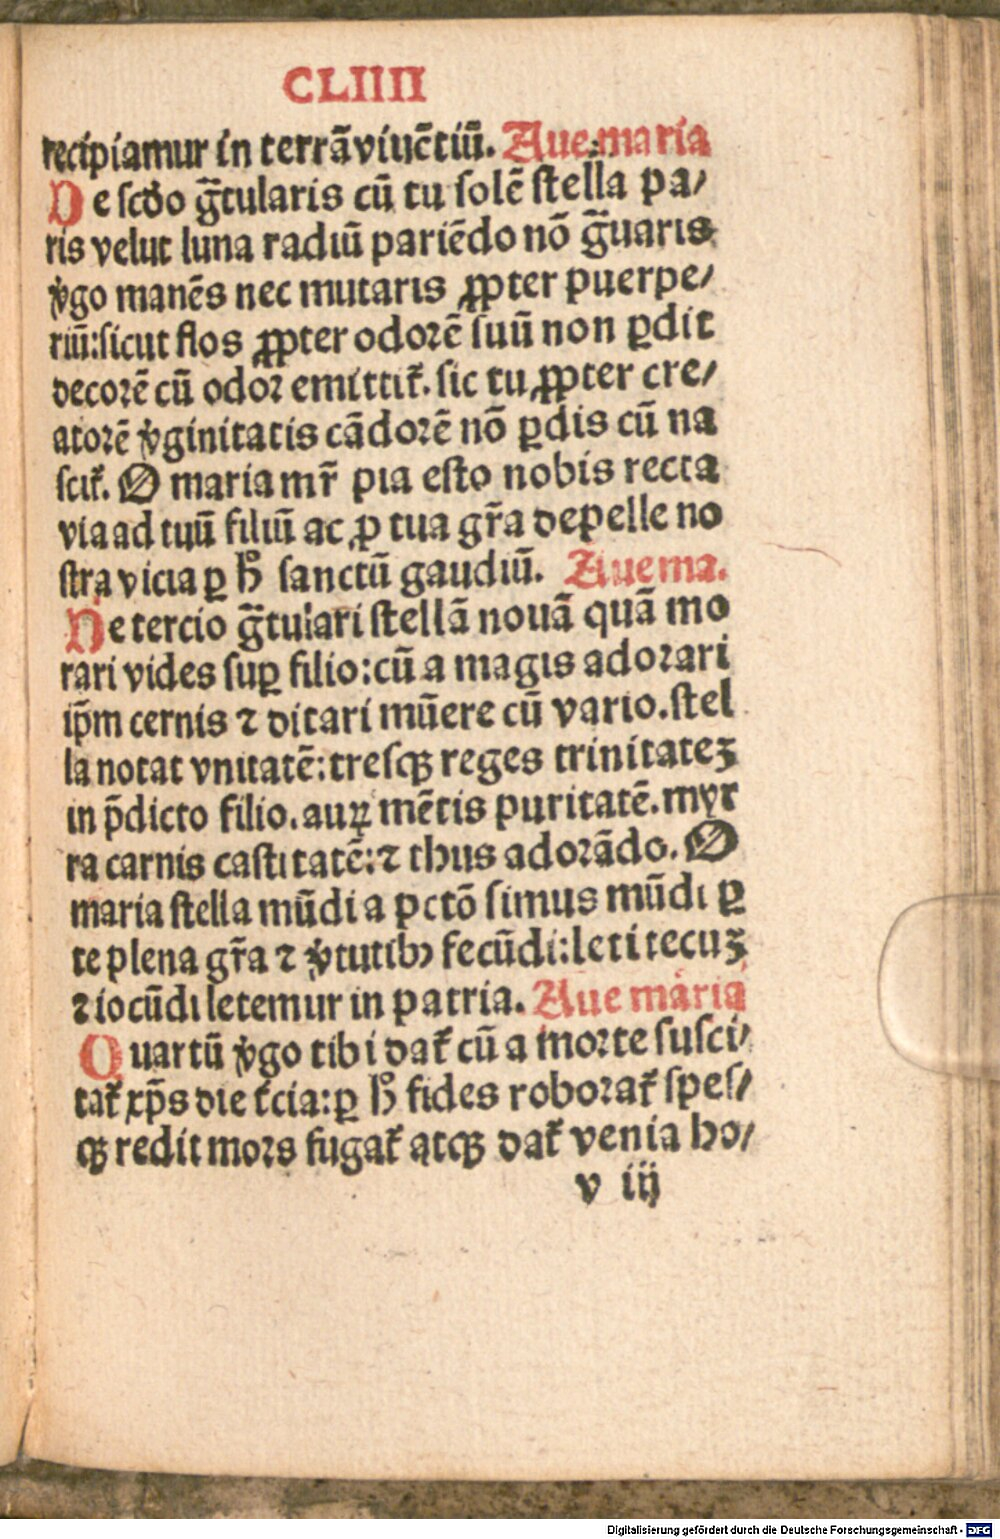 CLIIII
recipiamur in terrā viuētiū. Aue maria
De scdo g̃tularis cū tu solē stella pa/
ris velut luna radiū pariēdo nō g̃uaris
v̾go manēs nec mutaris ꝓpter puerpe/
riū: sicut flos ꝓpter odorē suū non ꝑdit
decorē cū odor emittit᷑. sic tu ꝓpter cre/
atorē v̾ginitatis cādorē nō ꝑdis cū na
scit᷑. O maria mr̄ pia esto nobis recta
via ad tuū filiū ac ꝓ tua gr̄a depelle no
stra vicia ꝑ hͦ sanctū gaudiū. Aue ma.
De tercio g̃tulari stellā nouā quā mo
rari vides suꝑ filio: cū a magis adorari
ip̄m cernis ⁊ ditari mūere cū vario. stel
la notat vnitatē: tresqꝫ reges trinitateꝫ
in p̄dicto filio. auꝝ mētis puritatē. myr
ra carnis castitatē: ⁊ thus adorādo. O
maria stella mūdi a pctō simus mūdi ꝑ
te plena gr̄a ⁊ v̾tutibꝰ fecūdi: leti tecuꝫ
⁊ iocūdi letemur in patria. Aue maria
Quartū v̾go tibi dat᷑ cū a morte susci/
tat᷑ xp̄s die t̾cia: ꝑ hͦ fides roborat᷑ spes/
qꝫ redit mors fugat᷑ atqꝫ dat᷑ venia ho/
v iij
Digitalisierung gefördert durch die Deutsche Forschungsgemeinschaft - DFG